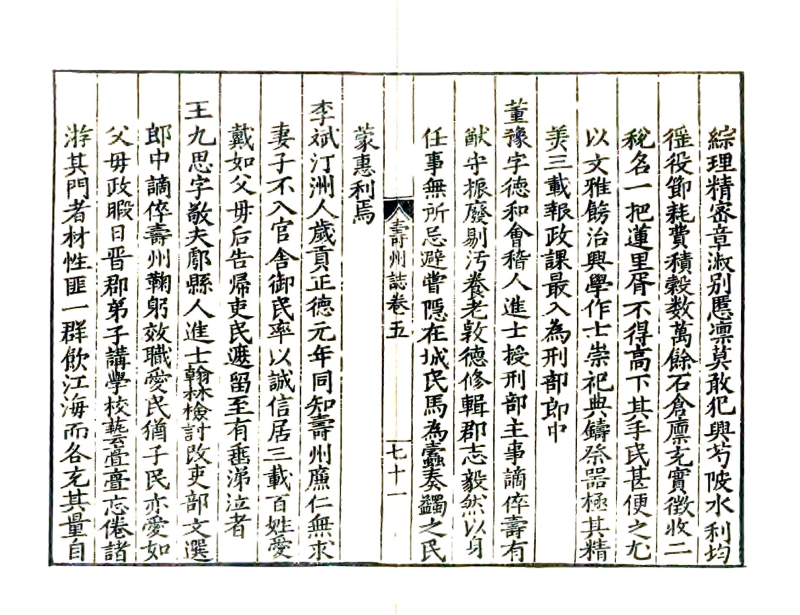 綜理精密章淑别慝凛莫敢犯興芍陂水利均
徭役節耗費積穀数萬餘石倉廪充實徴收二
稅名一把蓮里胥不得高下其手民甚便之尤
以文雅飭治興學作士崇祀典鑄祭器極其精
美三載報政課最入為刑部郎中
董豫字德和會稽人進士授刑部主事謫倅壽有
猷守振廢剔汚養老敦德修輯郡志毅然以身
任事無所忌避嘗隠在城民馬為蠹奏蠲之民
蒙惠利焉
壽州誌卷五
七十一
李斌汀洲人歲貢正德元年同知壽州亷仁無求
妻子不入官舎御民率以誠信居三載百姓愛
戴如父母后告歸吏民遮留至有垂涕泣者
王九思字敬夫鄠縣人進士翰林檢討改吏部文選
郎中謫倅壽州鞠躬效職愛民猶子民亦愛如
父母政暇日晋郡弟子講學校藝亹亹忘倦諸
游其門者材性匪一群飲江海而各充其量自